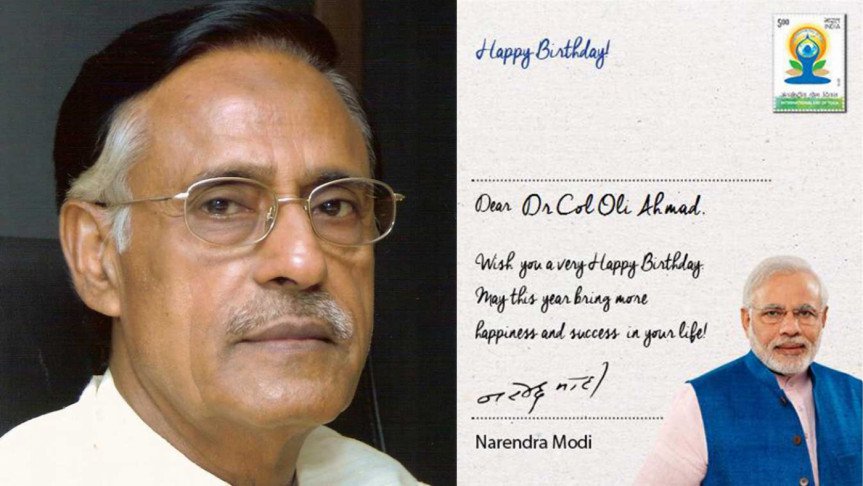 Happy Birthday!
5.00
भारत
INDIA
INTERNATIONAL DAY OF YOGA
Dear Dr Col Oli Ahmad.
Wish you a very Happy Birthday.
May this year bring more
happiness and success in your life!
नरेन्द्र मोदी
Narendra Modi